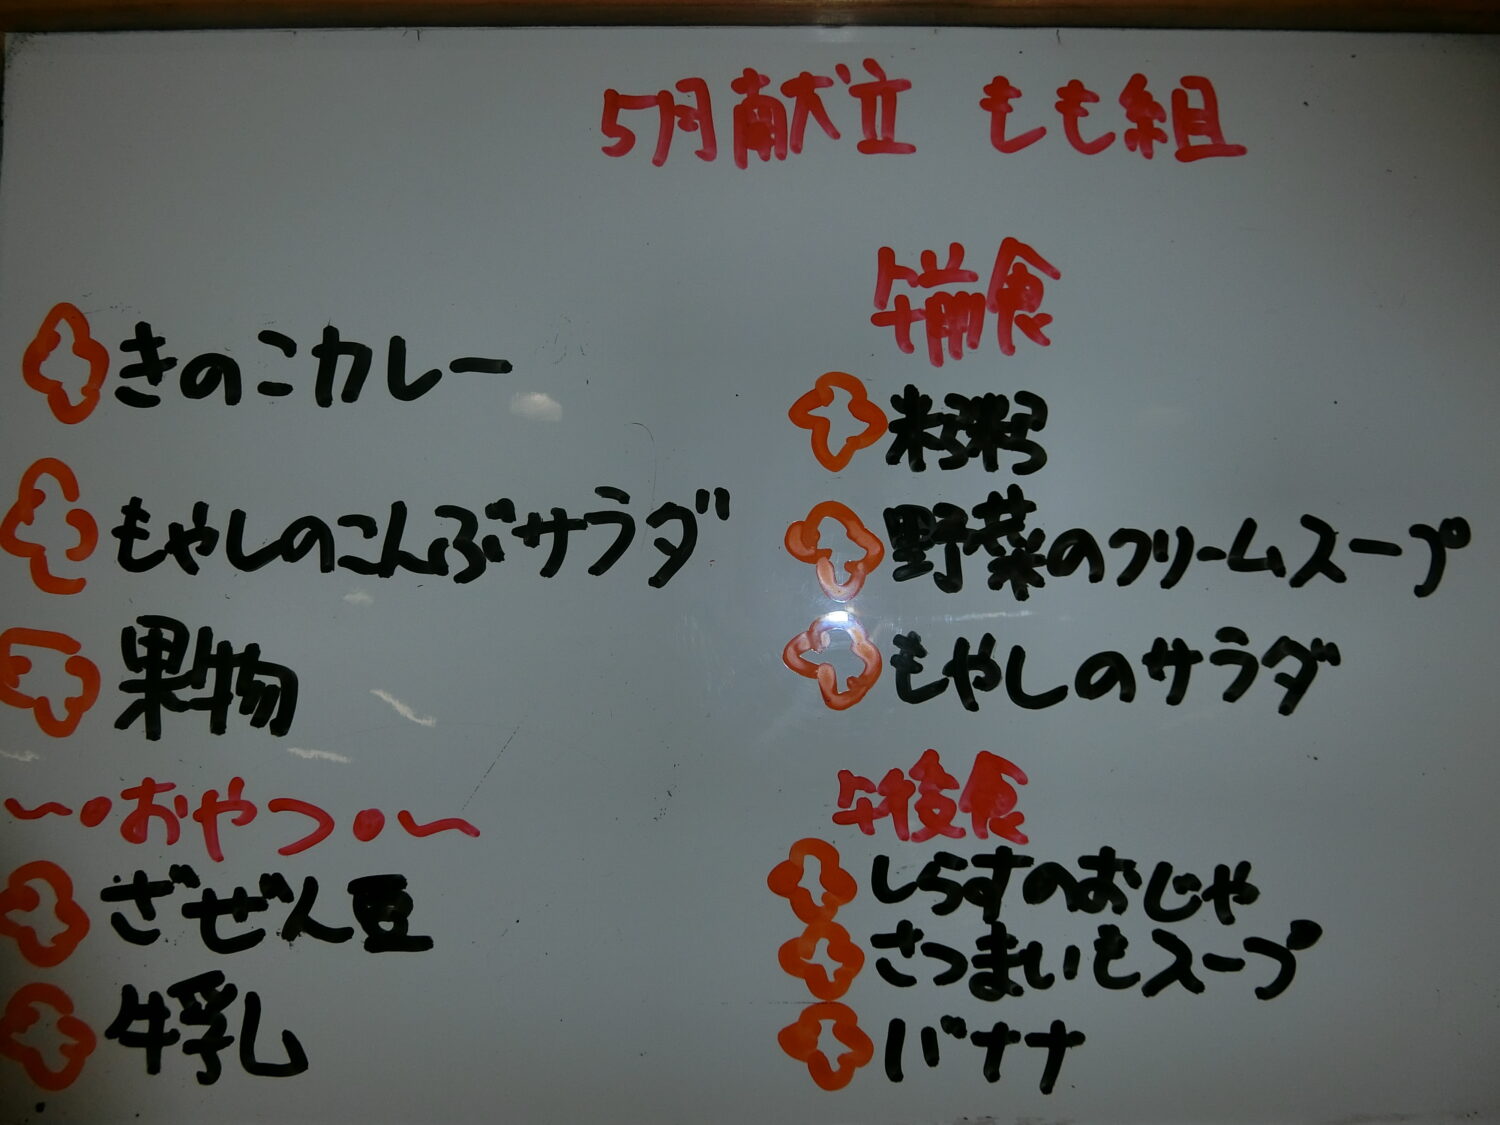 5月献立 もも組
きのこカレー
もやしのこんぶサラダ
果物
～・おやつ・～
ざぜん豆
牛乳
午前食
野菜のクリームスープ
もやしのサラダ
午後食
しらすのおじや
さつまいもスープ
バナナ